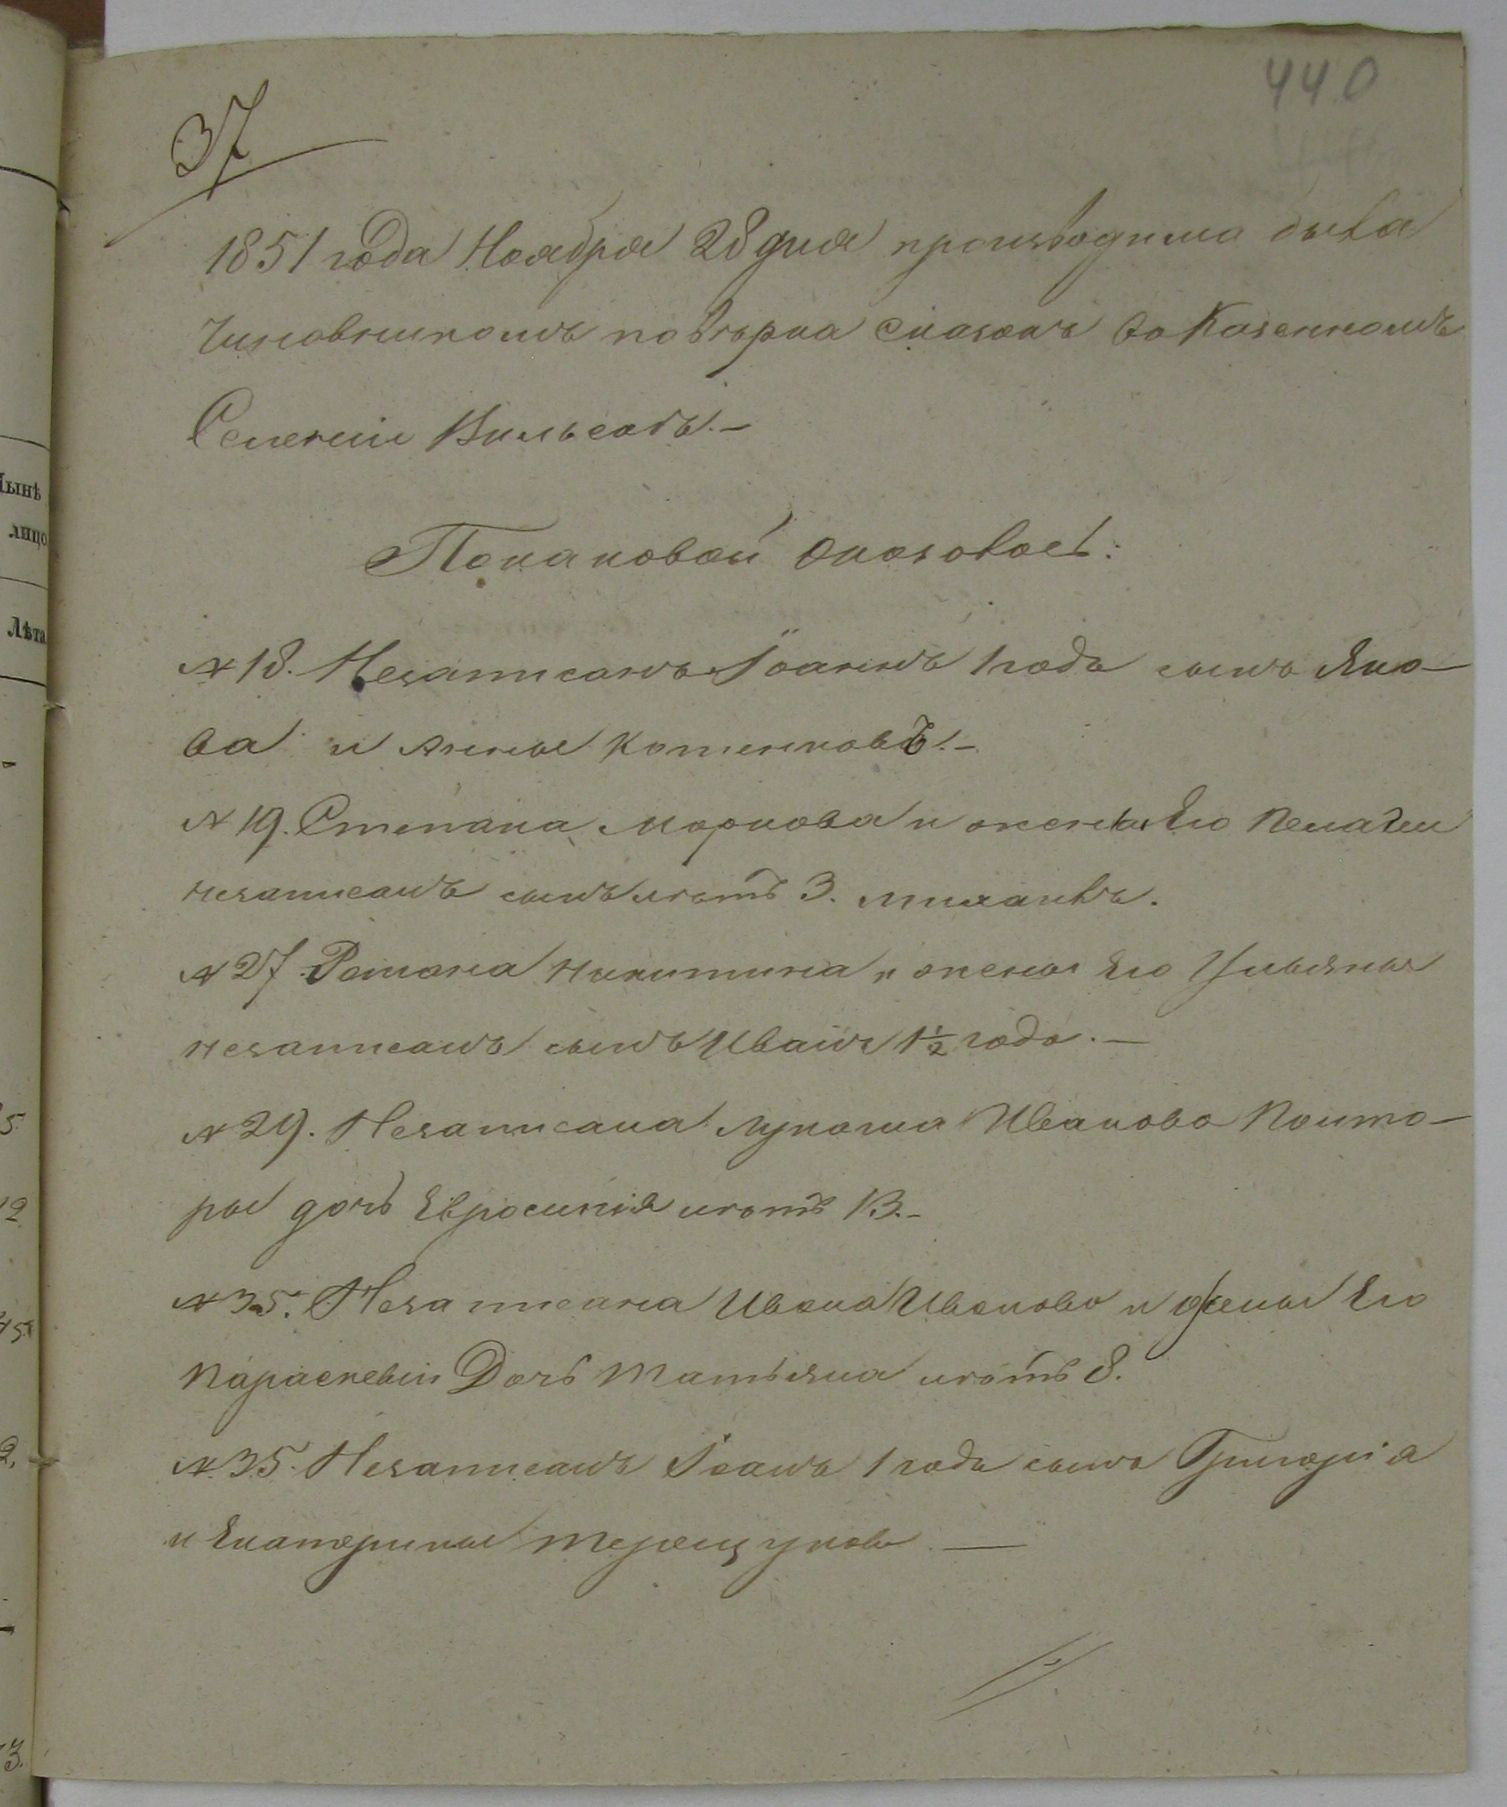 440
37
1851 года Ноября 28 дня производима была
Чиновникомъ повѣрка Сказокъ во Казенномъ
Селенiи Вильсагъ.–
По каковой оказалось:
№ 18. Незаписанъ Iоаннъ 1 года сынъ Яко–
ва и Анны Котенковъ.–
№ 19. Степана Маркова и жены Его Пелагеи
незаписанъ сынъ лѣтъ 3.
№ 27 Романа Никитина и жены Его Ульяны
незаписанъ сынъ Иванъ 1 1/2 года.–
№ 29. Незаписана Лукаша Иванова Полто–
ры дочь Евросинiя лѣтъ 13.–
№ 35. Незаписана Ивана Иванова и жены Его
Параскевiи Дочь Татьяна лѣтъ 8.
№ 35. Незаписанъ Iоанъ 1 года сынъ Григорiя
и Екатерины Терещуковъ.—
ынѣ
лицо
Лѣта